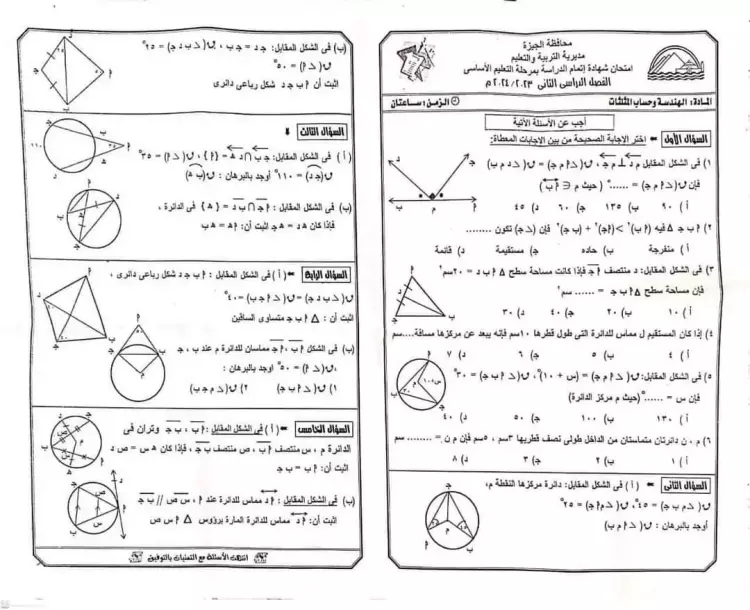 محافظة الجيزة
مديرية التربية والتعليم
امتحان شهادة إتمام الدراسة بمرحلة التعليم الأساسى
الفصل الدراسى الثانى ٢٠٢٣/ ٢٠٢٤ م
المادة: الهندسة وحساب المثلثات
الزمن: ساعتان
أجب عن الأسئلة الآتية
السؤال الأول اختر الاجابة الصحيحة من بين الاجابات المعطاة:
١) فى الشكل المقابل م د ⊥ م جـ ، ق(د أ م جـ) = ق(د د م ب)
فإن ق(د أ م جـ) = ......° (حيث م ∈ أ ب)
أ) ٩٠ ب) ١٣٥ جـ) ٦٠ د) ٤٥
٢) أ ب جـ ∆ فيه (أ ب)² > (أ جـ)² + (ب جـ)² فإن (د جـ) تكون ......
أ) منفرجة ب) حاده جـ) مستقيمة د) قائمة
٣) فى الشكل المقابل: د منتصف أ جـ فإذا كانت مساحة سطح ∆ أ ب د = ٢٠سم²
فإن مساحة سطح ∆ أ ب جـ = ...... سم²
أ) ١٠ ب) ٢٠ جـ) ٤٠ د) ٣٠
٤) إذا كان المستقيم ل مماس للدائرة التى طول قطرها ١٠سم فإنه يبعد عن مركزها مسافة....سم
أ) ٤ ب) ٥ جـ) ٦ د) ٧
٥) فى الشكل المقابل: ق(د أ م جـ) = (س + ١٠)° ، ق(د أ ب جـ) = ٣٠°
فإن س = ......° (حيث م مركز الدائرة)
أ) ١٣٠ ب) ١٠٠ جـ) ٥٠ د) ٤٠
٦) م ، ن دائرتان متماستان من الداخل طولى نصف قطريها ٣سم ، ٥سم فإن م ن = ........سم
أ) ١ ب) ٢ جـ) ٣ د) ٨
السؤال الثانى (أ) فى الشكل المقابل: دائرة مركزها النقطة م،
ق(د م ب جـ) = ٤٥° ، ق(د م أ جـ) = ٢٥°
أوجد بالبرهان : ق(د أ م ب)
(ب) فى الشكل المقابل: جـ د = جـ ب ، ق(د ب د جـ) = ٢٥°
ق(د أ) = ٥٠°
اثبت أن أ ب جـ د شكل رباعى دائرى
السؤال الثالث
(أ) فى الشكل المقابل: جـ ب ∩ د هـ = {أ} ، ق(د أ) = ٣٥°
ق(جـ د) = ١١٠° أوجد بالبرهان : ق(ب هـ)
(ب) فى الشكل المقابل : أ جـ ∩ ب د = {هـ} فى الدائرة ،
فإذا كان هـ د = هـ جـ اثبت أن: أ هـ = هـ ب
السؤال الرابع (أ) فى الشكل المقابل : أ ب جـ د شكل رباعى دائرى ،
ق(د ب د جـ) = ق(د أ جـ ب) = ٤٠°
اثبت أن : ∆ أ ب جـ متساوى الساقين
(ب) فى الشكل المقابل : أ ب ، أ جـ مماسان للدائرة م عند ب ، جـ
، ق(د أ) = ٥٠° أوجد بالبرهان :
١) ق(د أ ب جـ) ٢) ق(د م جـ ب)
السؤال الخامس (أ) فى الشكل المقابل : أ ب ، ب جـ وتران فى
الدائرة م ، س منتصف أ ب ، ص منتصف ب جـ ، فإذا كان هـ س = ص د
اثبت أن: أ ب = ب جـ
(ب) فى الشكل المقابل : أ د مماس للدائرة عند أ ، س ص // ب جـ
اثبت أن: أ د مماس للدائرة المارة برؤوس ∆ أ س ص
انتهت الأسئلة مع التمنيات بالتوفيق